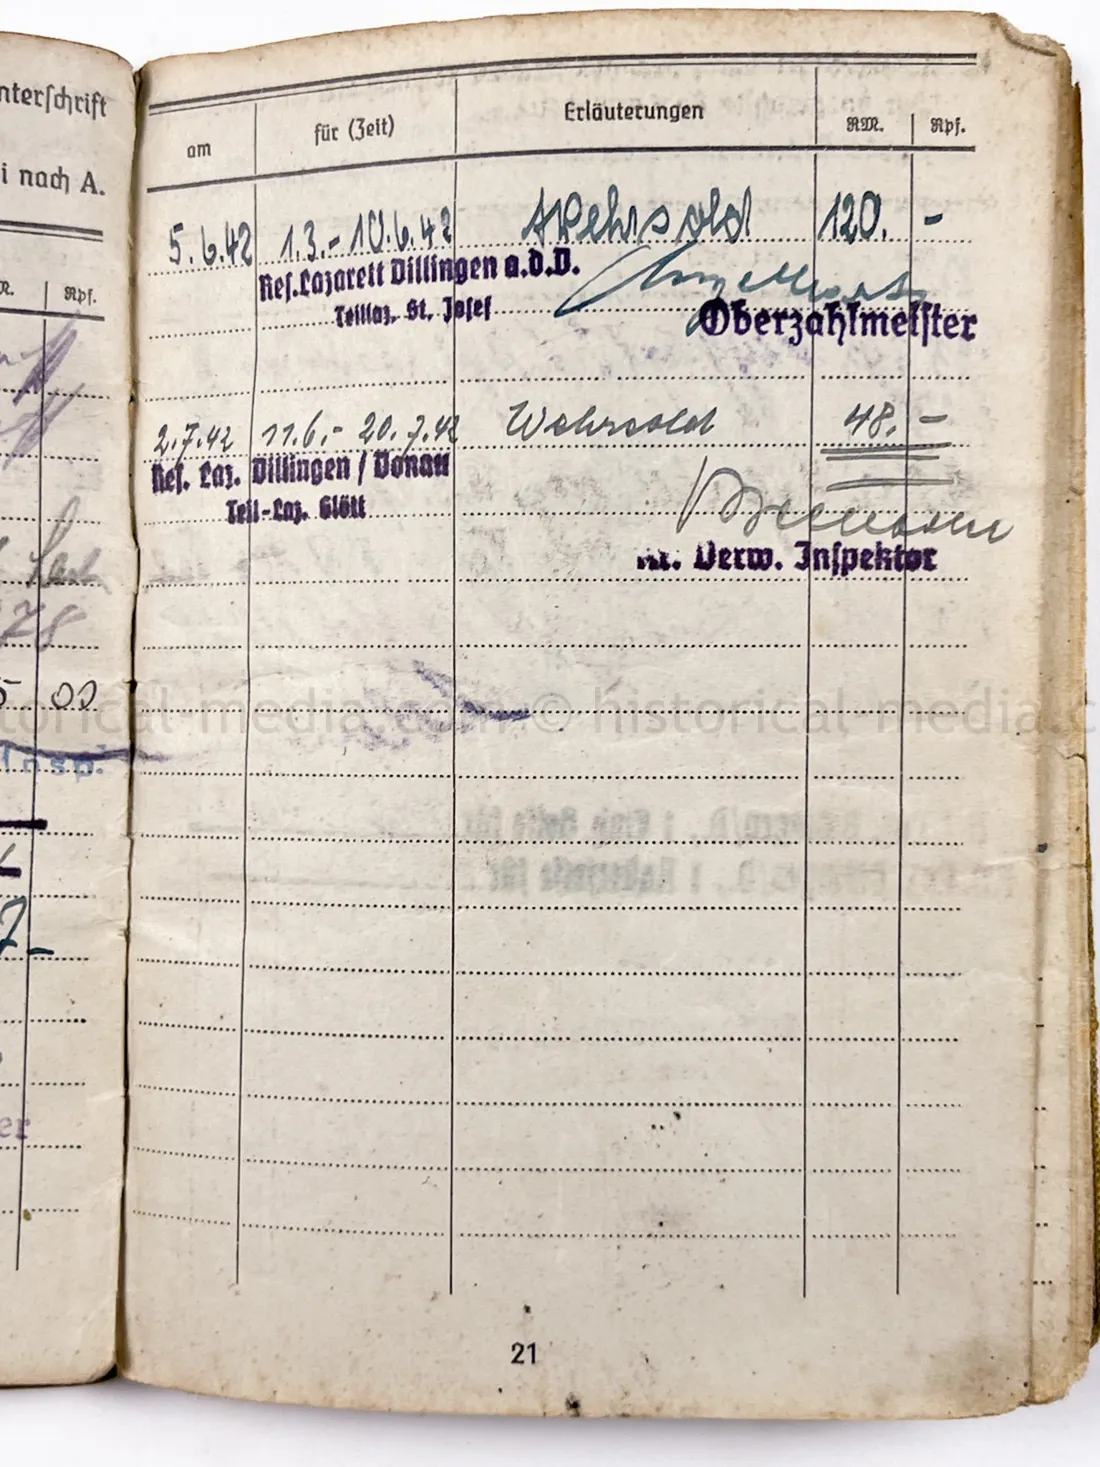 nterschrift
i nach A.
Rpf.
78
00
Insp.
7 –
er
am
für (Zeit)
Erläuterungen
RM.
Rpf.
5.6.42 1.3.- 10.6.42 Wehrsold 120. –
Res. Lazarett Dillingen a.d.D.
Teillaz. St. Josef
Oberzahlmeister
2.7.42 11.6.- 20.7.42 Wehrsold 48. –
Res. Laz. Dillingen / Donau
Teil-Laz. Glött
Verw. Inspektor
historical-media.com © historical-media.c
21